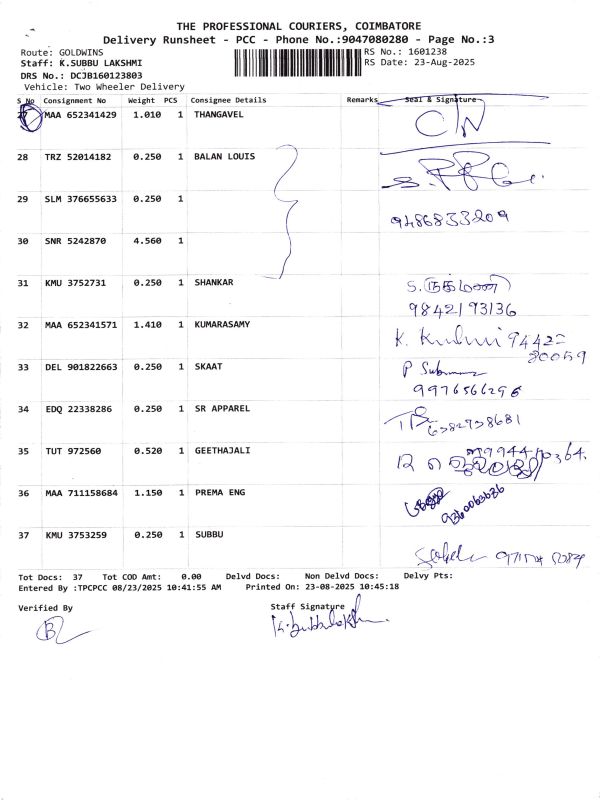 THE PROFESSIONAL COURIERS, COIMBATORE
Delivery Runsheet - PCC - Phone No.:9047080280 - Page No.:3
Route: GOLDWINS RS No.: 1601238
Staff: K.SUBBU LAKSHMI RS Date: 23-Aug-2025
DRS No.: DCJB160123803
Vehicle: Two Wheeler Delivery
S No Consignment No Weight PCS Consignee Details Remarks Seal & Signature
27 MAA 652341429 1.010 1 THANGAVEL
28 TRZ 52014182 0.250 1 BALAN LOUIS
29 SLM 376655633 0.250 1
9486833209
30 SNR 5242870 4.560 1
31 KMU 3752731 0.250 1 SHANKAR
9842193136
32 MAA 652341571 1.410 1 KUMARASAMY
K. 94422
20059
33 DEL 901822663 0.250 1 SKAAT
P
9976566296
34 EDQ 22338286 0.250 1 SR APPAREL
6382738681
35 TUT 972560 0.520 1 GEETHAJALI
36 MAA 711158684 1.150 1 PREMA ENG
9360063636
37 KMU 3753259 0.250 1 SUBBU
Tot Docs: 37 Tot COD Amt: 0.00 Delvd Docs: Non Delvd Docs: Delvy Pts:
Entered By :TPCPCC 08/23/2025 10:41:55 AM Printed On: 23-08-2025 10:45:18
Verified By Staff Signature